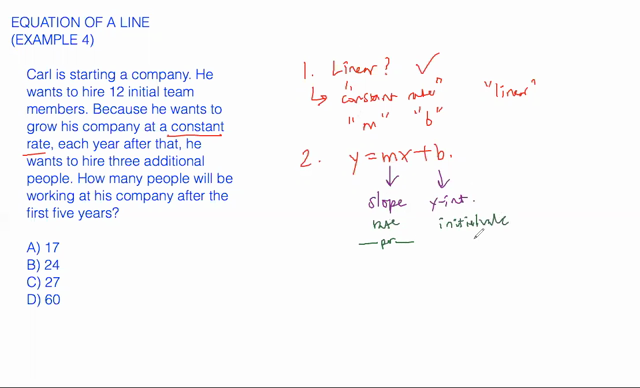 EQUATION OF A LINE
(EXAMPLE 4)
Carl is starting a company. He
wants to hire 12 initial team
members. Because he wants to
grow his company at a constant
rate, each year after that, he
wants to hire three additional
people. How many people will be
working at his company after the
first five years?
A) 17
B) 24
C) 27
D) 60
1. Linear? ✓
↳ "constant rate" "linear"
"m" "b"
2. y = mx + b.
slope y-int.
rate initial
— per —